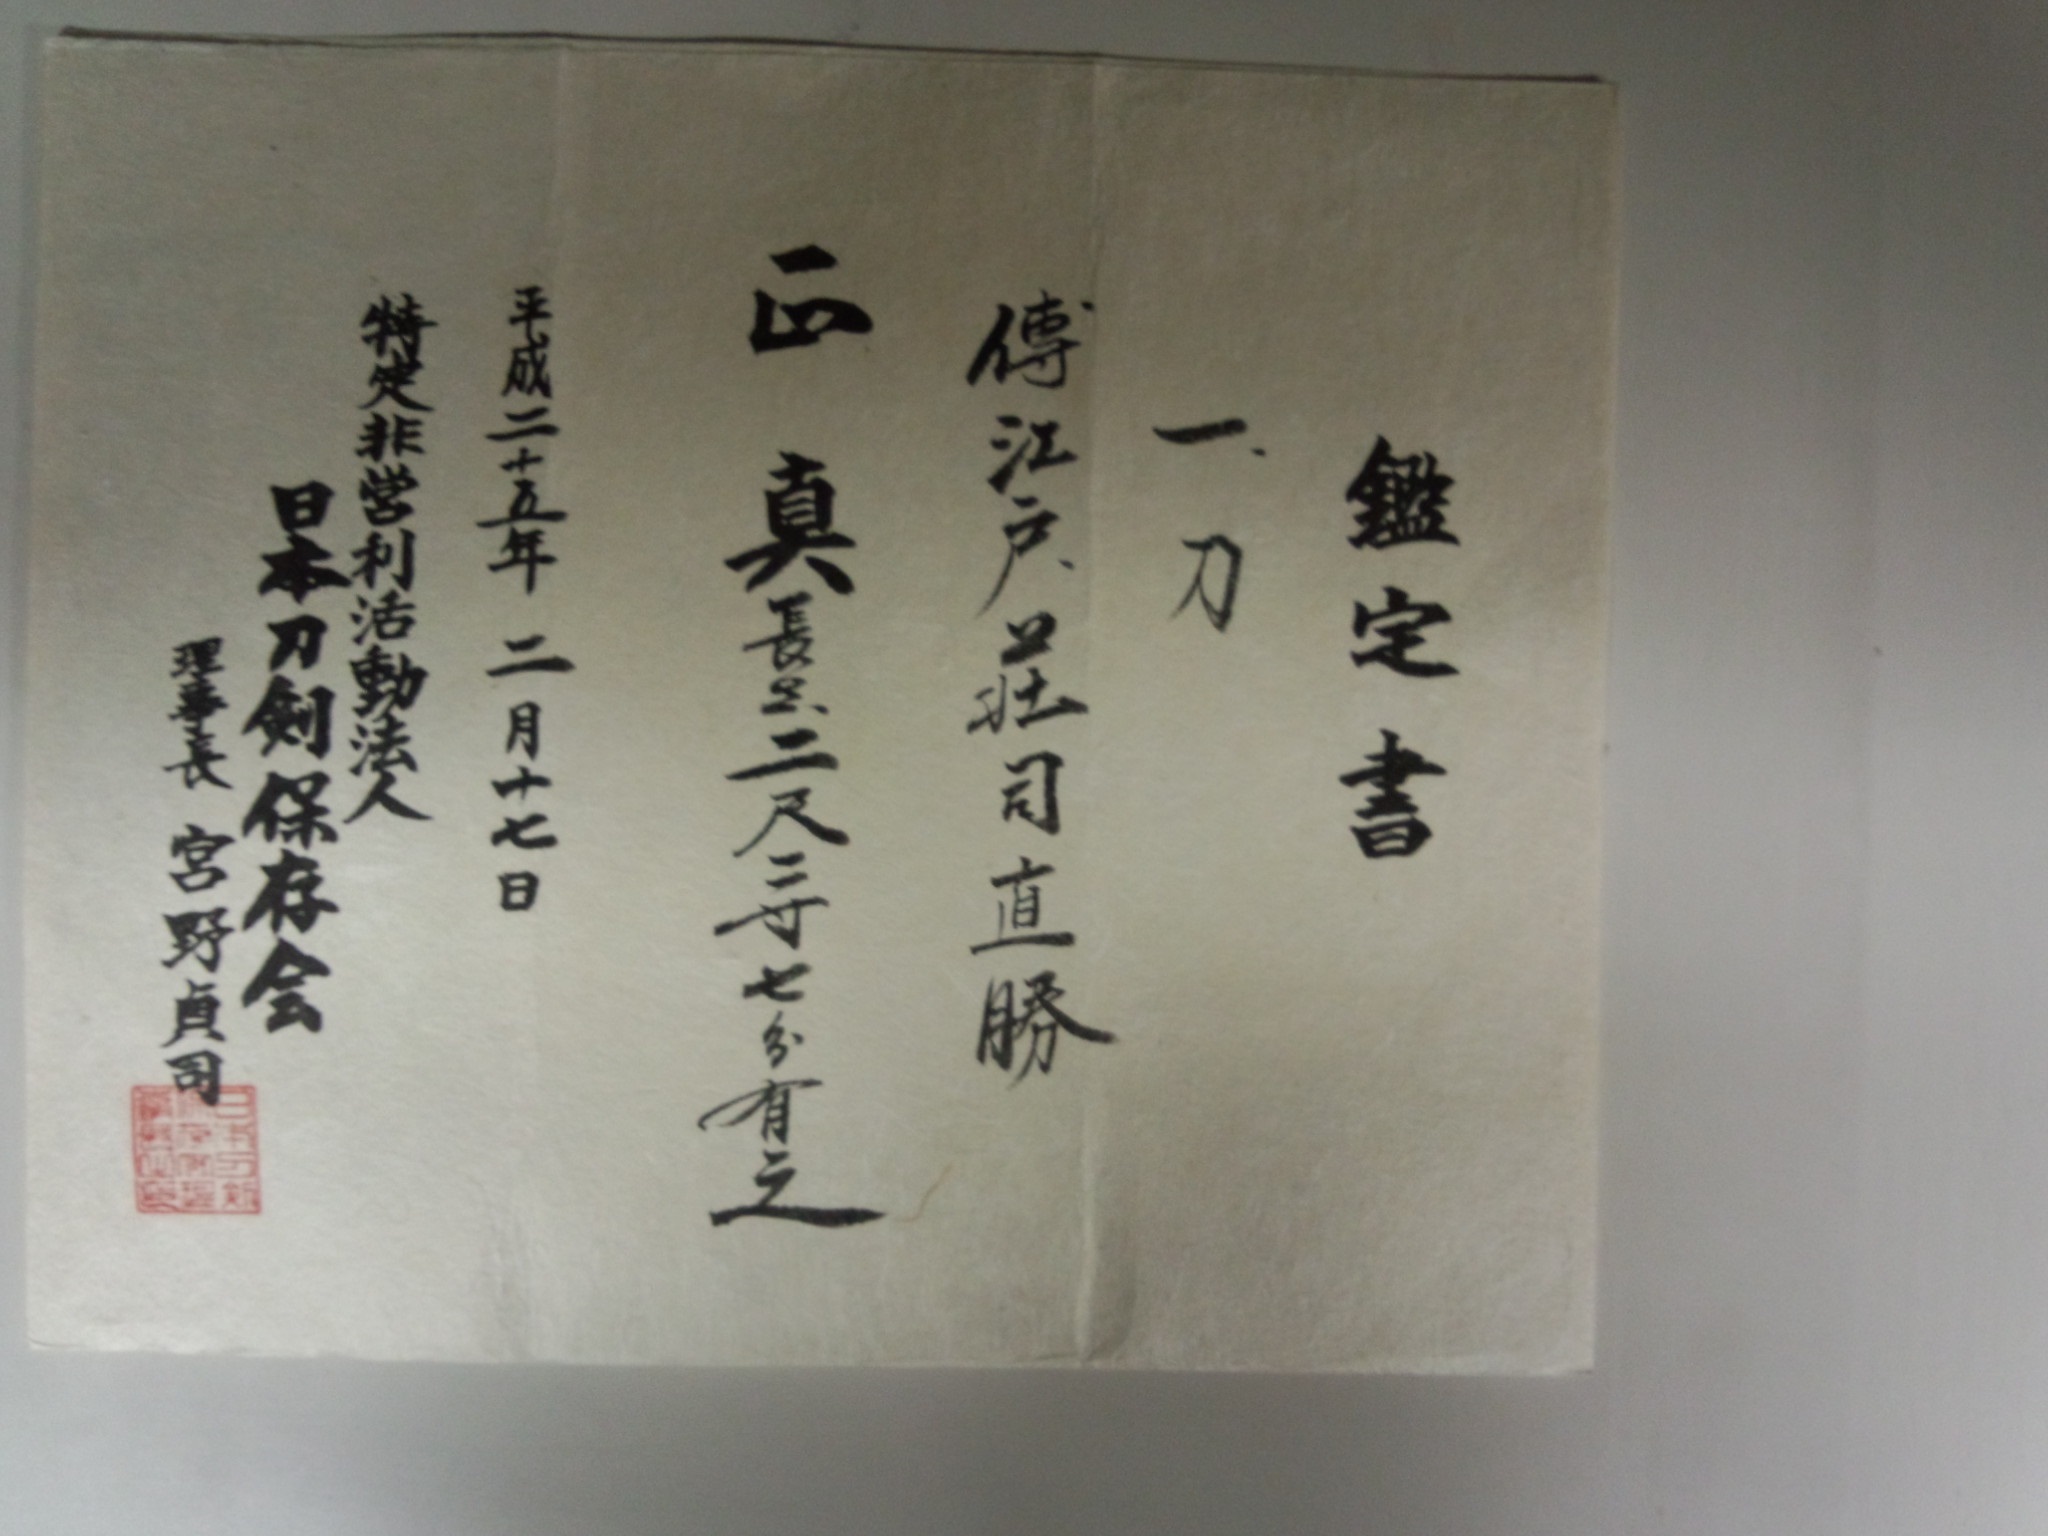 鑑定書
一、刀
傳江戸荘司直勝
正真長サ二尺三寸七分有之
平成二十五年 二月十七日
特定非営利活動法人
日本刀剣保存会
理事長 宮野貞司